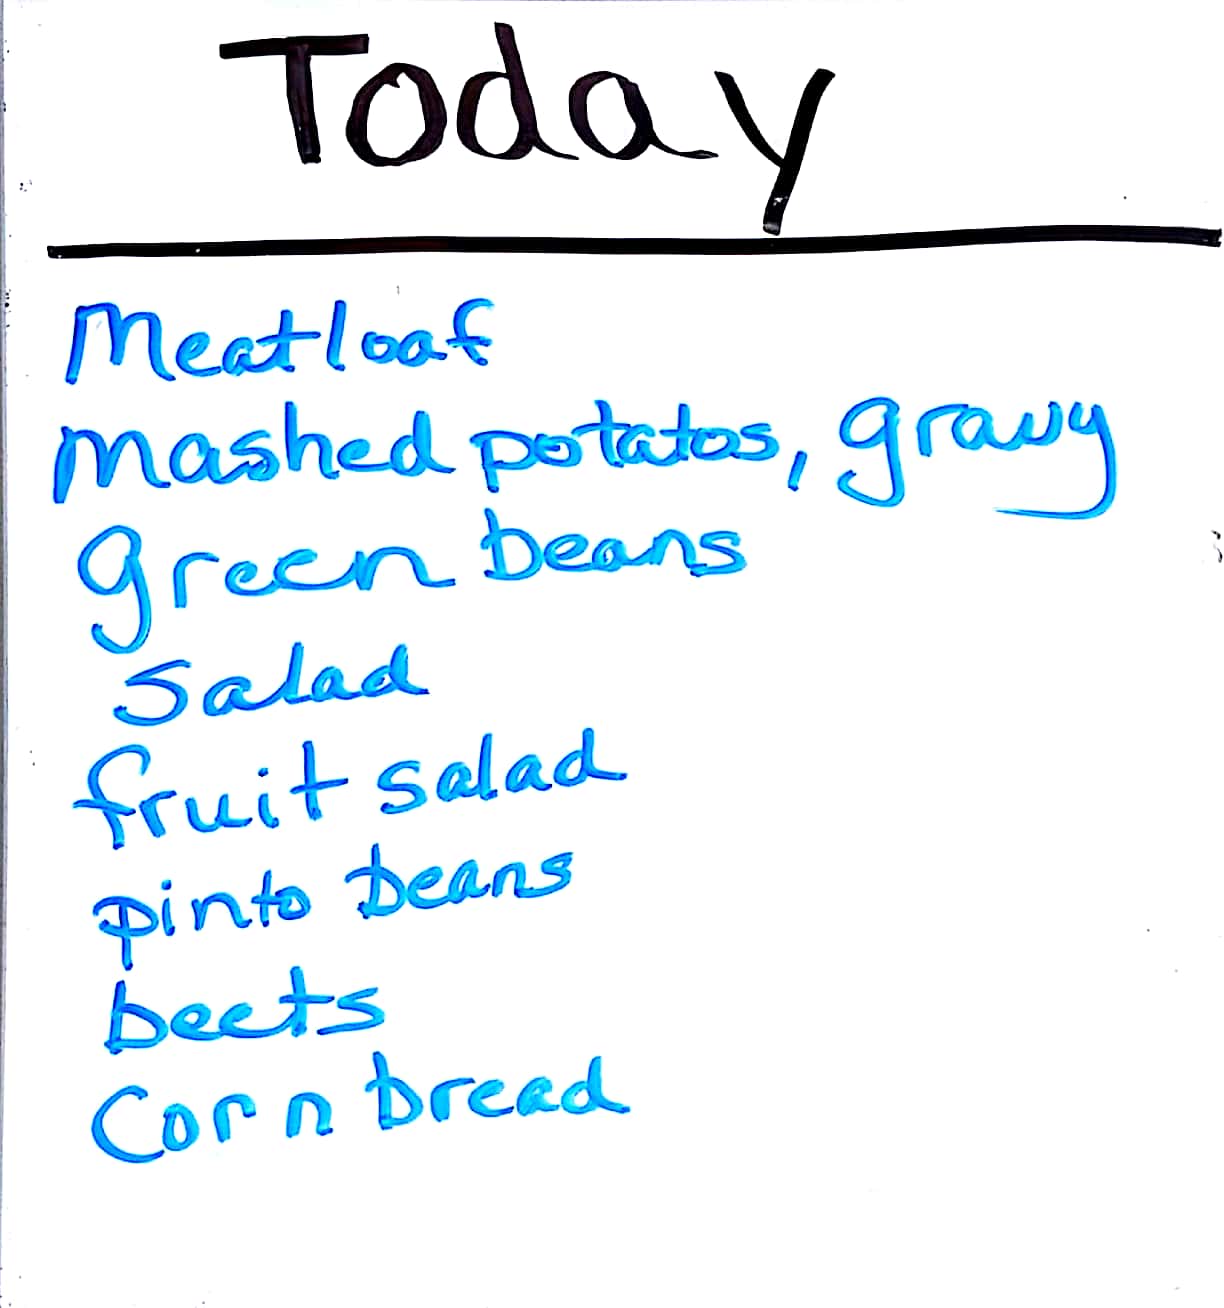 Today
Meatloaf
Mashed potatos, gravy
green beans
Salad
fruit salad
pinto beans
beets
Corn bread